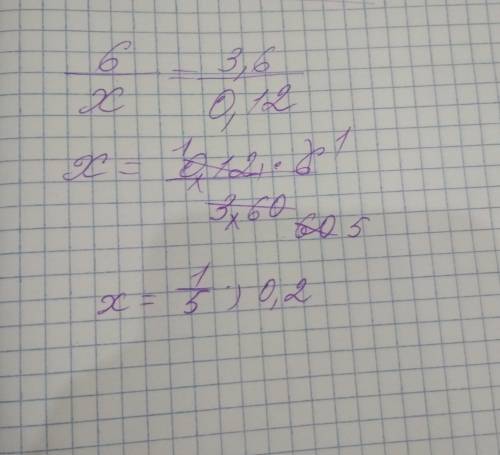 6/x = 3,6/0,12
x = 0,12 · 6 / 3,60
1 1
60 5
x = 1/5 ; 0,2